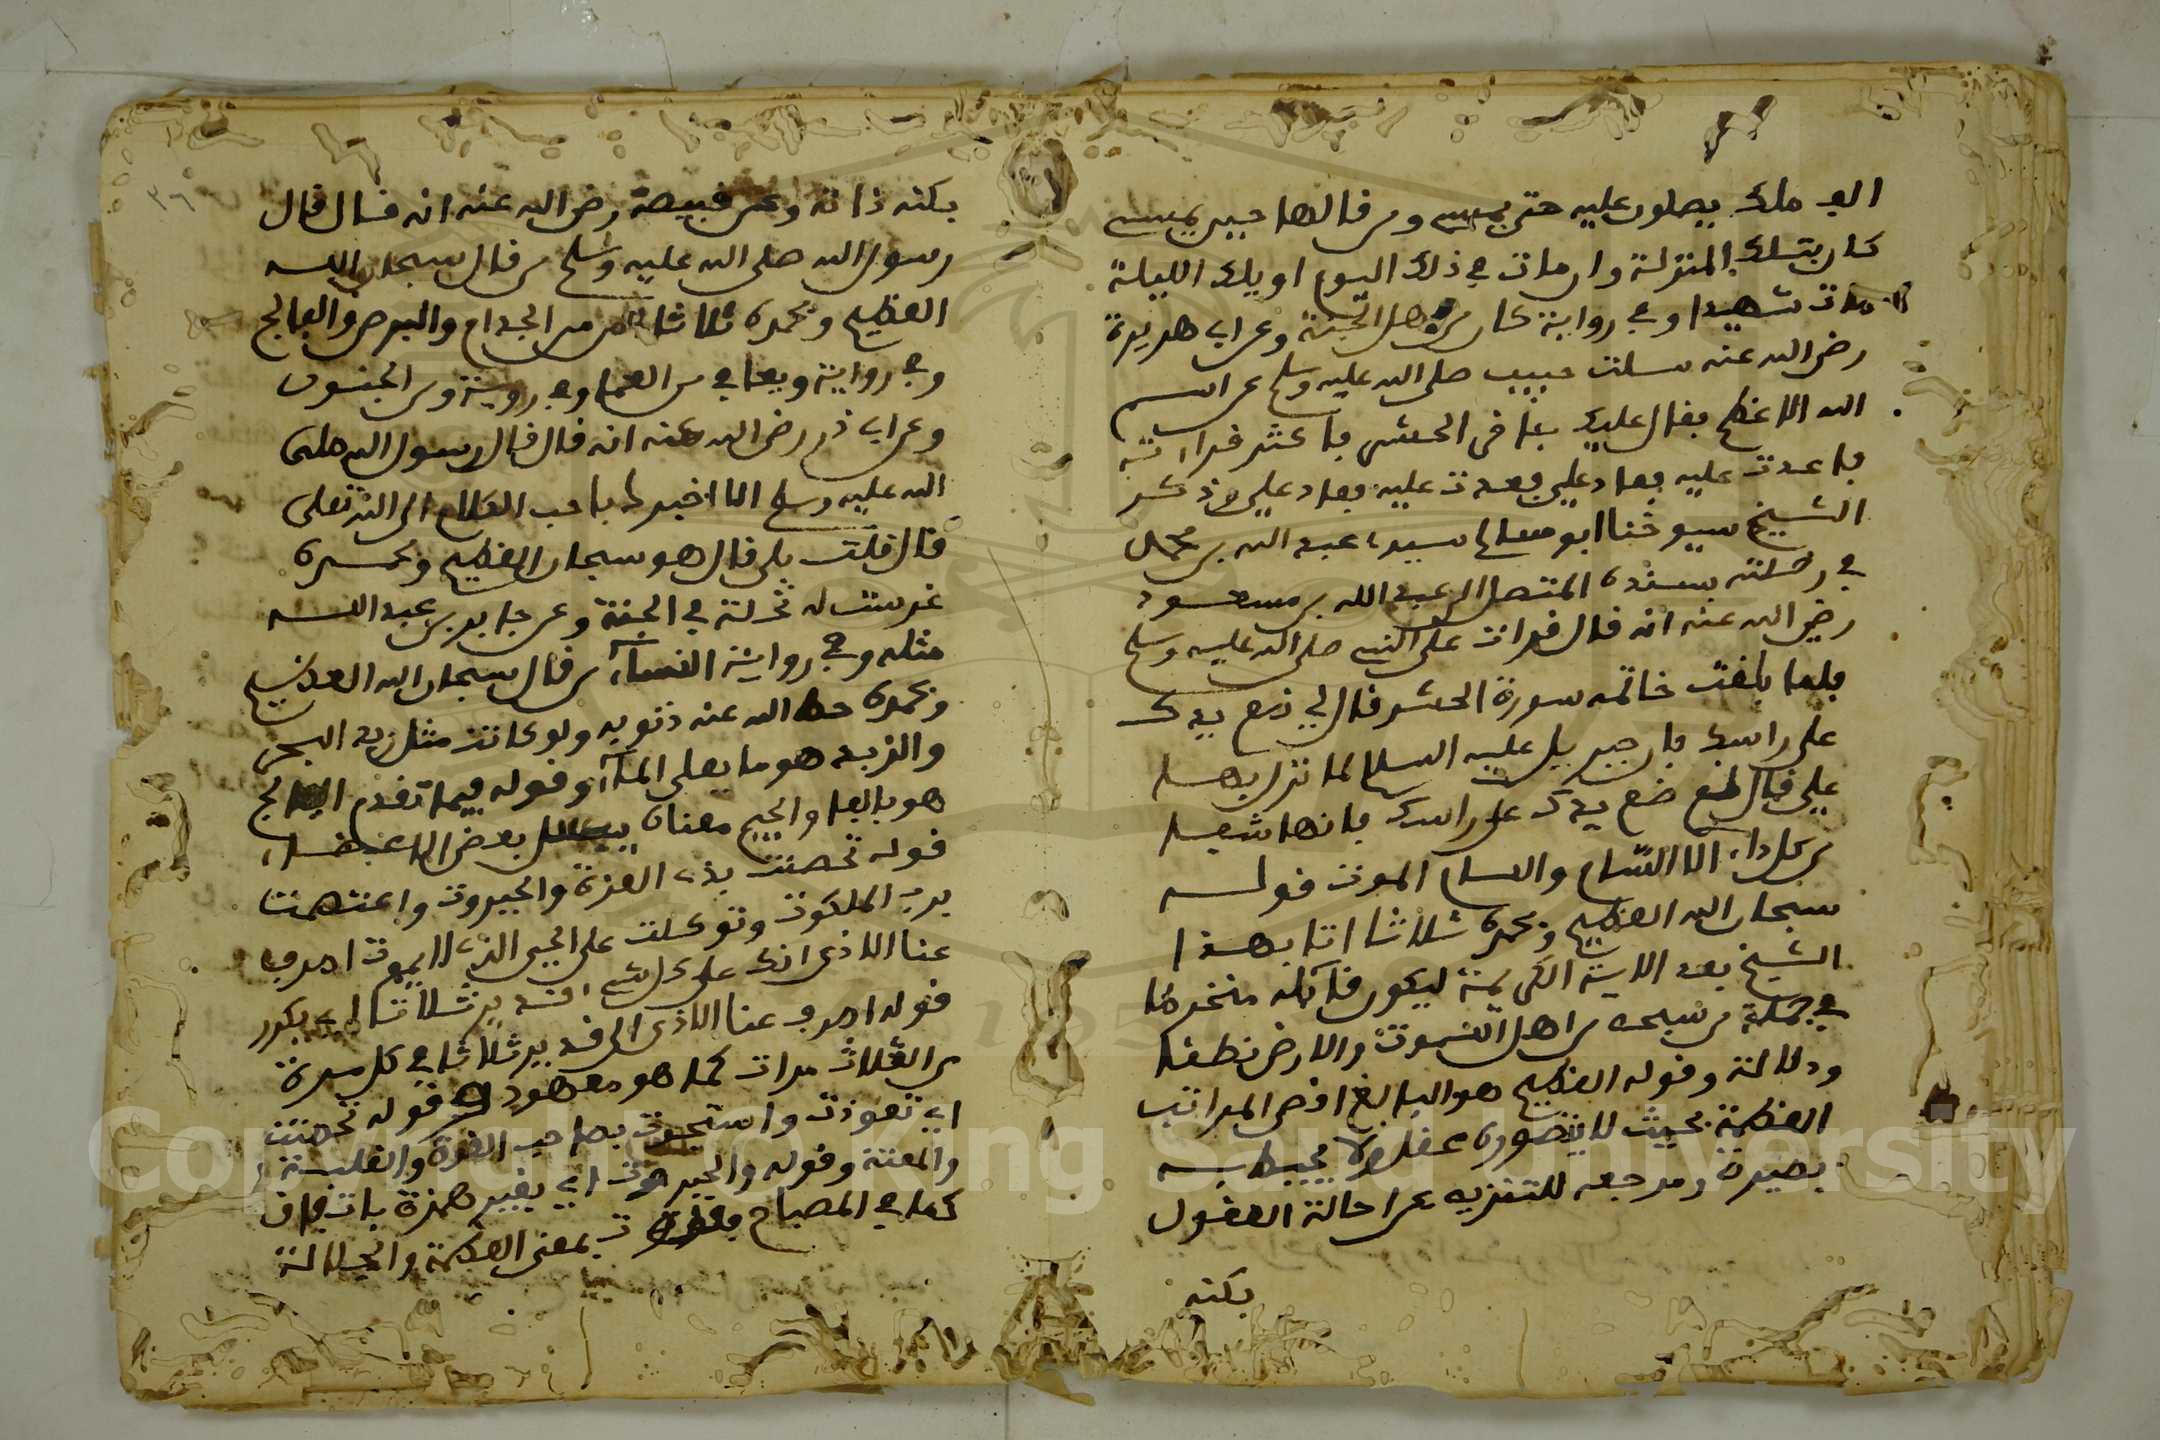 الف ملك يصلون عليه حتى يمسي ومن قالها حين يمسي
كان بتلك المنزلة وان مات في ذلك اليوم او تلك الليلة
مات شهيدا وفي رواية كان من اهل الجنة وعن ابي هريرة
رضي الله عنه سالت حبيبي صلى الله عليه وسلم عن اسم
الله الاعظم فقال عليك باخر الحشر فاكثر قراءته
فاعدت عليه فعاد علي فعدت عليه فعاد علي وذكر
الشيخ شيوخنا ابو سالم سيدي عبد الله بن محمد
في رحلته بسنده المتصل الى عبد الله بن مسعود
رضي الله عنه انه قال قرات على النبي صلى الله عليه وسلم
فلما بلغت خاتمه سورة الحشر قال لي ضع يدك
على راسك فان جبريل عليه السلام لما نزل بها
علي قال لي ضع يدك على راسك فانها شفا
من كل داء الا السام والسام الموت قوله
سبحان الله العظيم وبحمده ثلاثا اتا بهذا
الشيخ بعد الاية الكريمة ليكون قائله منخرطا
في جملة من سبحه من اهل السموت والارض نطقا
ودلالة وقوله العظيم هو البالغ اقصى المراتب
العظمة بحيث لا يتصوره عقل ولا يحيط به
بصيرة ومرجعه للتنزيه عن احالة العقول
بكنه
٣٦
بكنه ذاته وعن قبيصة رضي الله عنه انه قال قال
رسول الله صلى الله عليه وسلم من قال سبحان الله
العظيم وبحمده ثلاثا من الجذام والبرص والفالج
وفي رواية ويعافى من العما وفي رواية ومن الجنون
وعن ابي ذر رضي الله عنه انه قال قال رسول الله صلى
الله عليه وسلم الا اخبرك باحب الكلام الى الله تعلى
قال قلت بلى قال هو سبحان العظيم وبحمده
غرست له نخلة في الجنة وعن جابر بن عبد الله
مثله وفي رواية النساء من قال سبحان الله العظيم
وبحمده حط الله عنه ذنوبه ولو كانت مثل زبد البحر
والزبد هو ما يعلى الماء وقوله فيما تقدم الفالج
هو بالفا والجيم معناه بعض الاعضاء
قوله تحصنت بذي العزة والجبروت واعتصمت
برب الملكوت وتوكلت على الحي الذي لا يموت اصرف
عنا الاذى انك على كل شيء قدير ثلاثا اي يكرر
قوله اصرف عنا الاذى الى قدير ثلاثا في كل مرة
من الثلاث مرات كما هو معهود قوله تحصنت
اي تعوذت واستجرت بصاحب العزة والغلبة
والمعنة وقوله والجبروت اي بغير همزة بات فيات
كما في المصباح بمعنى العظمة والجلالة
Copyright © King Saud University
1957